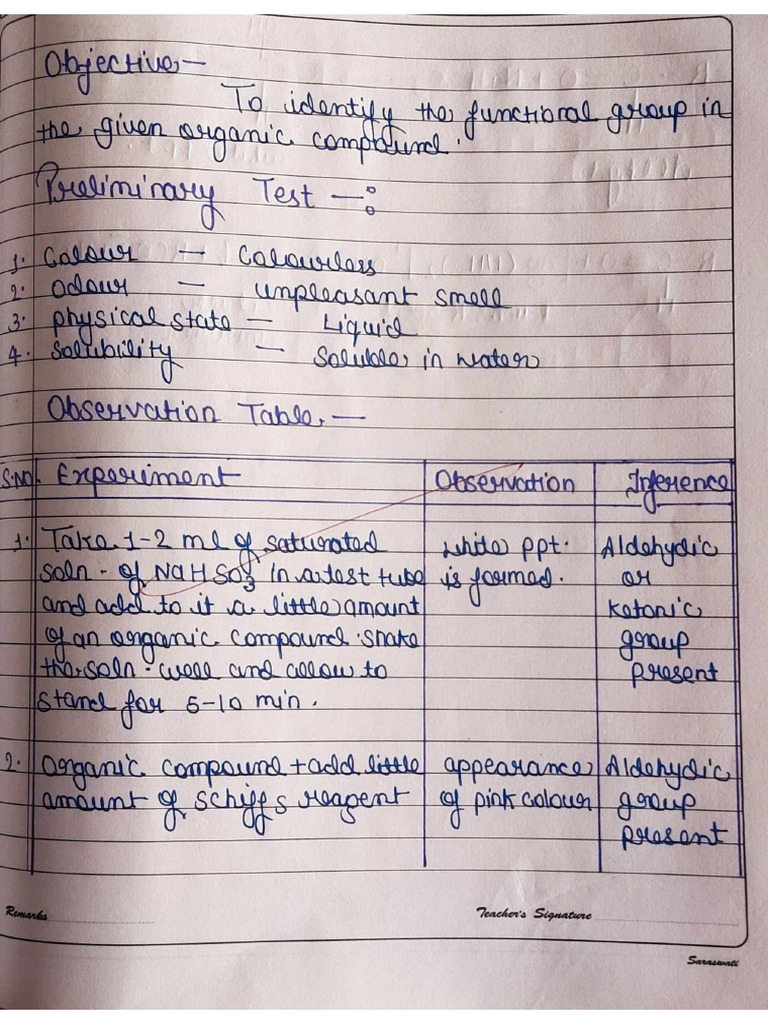 Objective -
To identify the functional group in
the given organic compound.
Preliminary Test -:
1. Colour - Colourless
2. Odour - unpleasant smell
3. physical state - Liquid
4. Solubility - Soluble in water
Observation Table. -
S.NO. Experiment Observation Inference
1. Take 1-2 ml of saturated white ppt. Aldehydic
soln. of NaHSO3 in a test tube is formed. or
and add to it a little amount ketonic
of an organic compound. Shake group
the soln. well and allow to present
stand for 5-10 min.
2. Organic compound + add little appearance Aldehydic
amount of schiff's reagent of pink colour group
present
Remarks Teacher's Signature
Saraswati